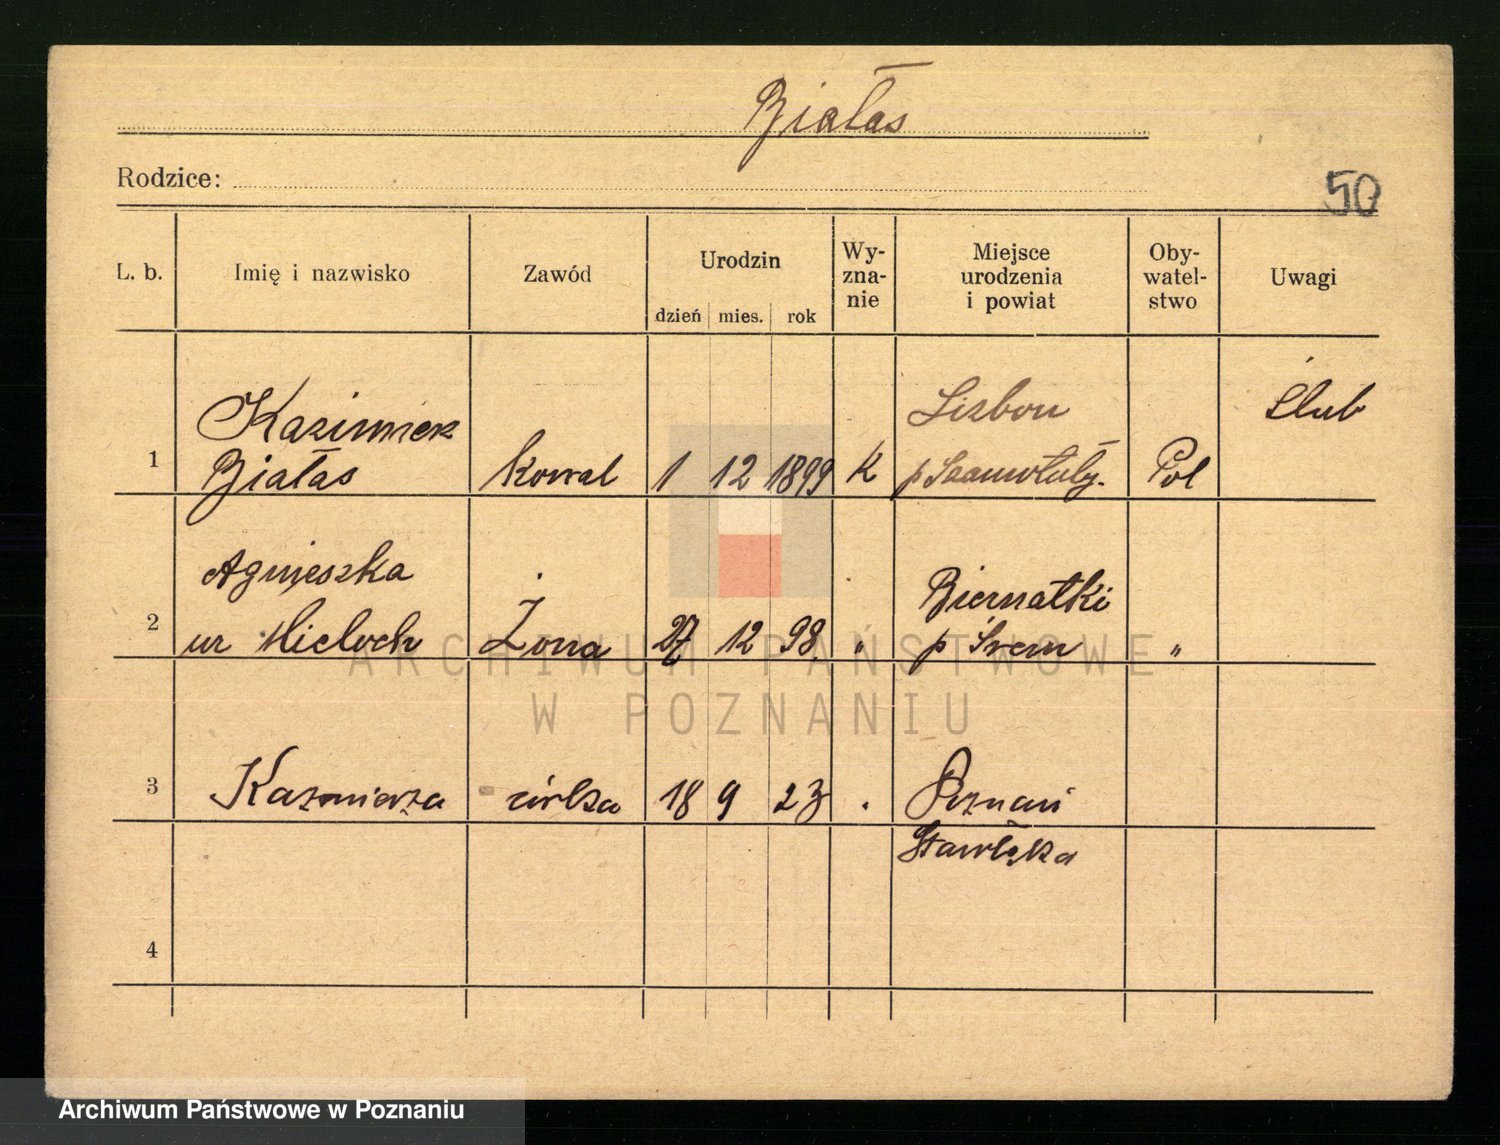 Białas
Rodzice:
50
L. b.
Imię i nazwisko
Zawód
Urodzin
dzień mies. rok
Wy-
zna-
nie
Miejsce
urodzenia
i powiat
Oby-
watel-
stwo
Uwagi
1
Kazimierz
Białas
Kowal
1 12 1899
K
p
Pol
Ślub
2
Agnieszka
ur Mieloch
Żona
27 12 98
"
Biernatki
p Śrem
"
3
Kazmierza
córka
18 9 23
Poznań
4
ARCHIWUM PAŃSTWOWE
W POZNANIU
Archiwum Państwowe w Poznaniu